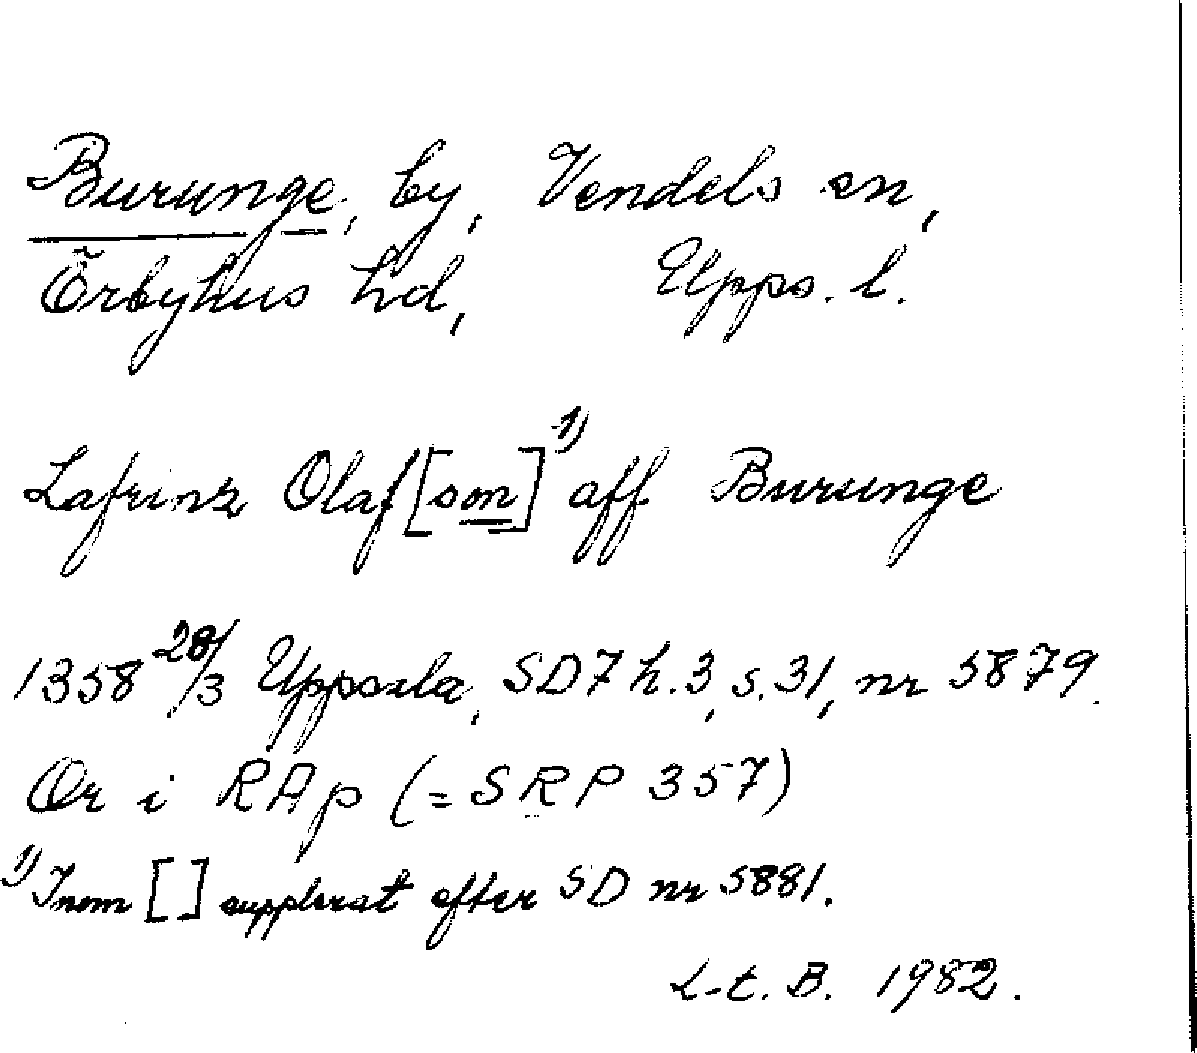 Burunge, by, Vendels sn,
Örbyhus hd, Upps. l.
Lafrinz Olaf[son]1) aff Burunge
1358 28/3 Uppsala, SD7 h.3, s.31, nr 5879.
Or i RAp (= SRP 357)
1) Inom [ ] supplerat efter SD nr 5881.
L-t. B. 1982.